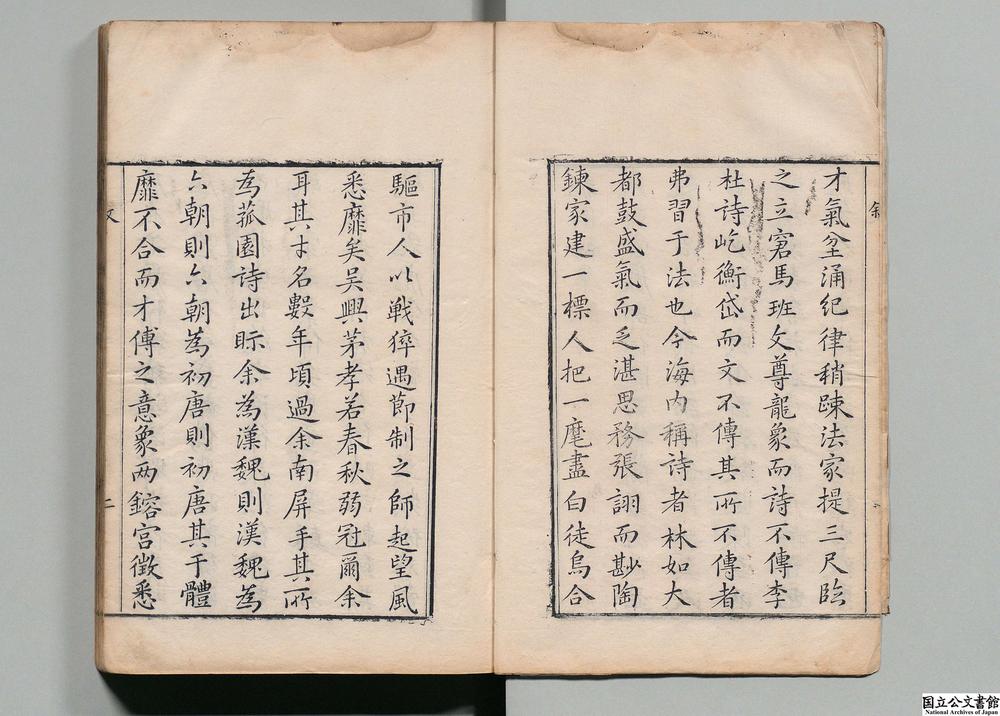 才氣坌涌紀律稍踈法家提三尺臨
之立窘馬班文尊龍象而詩不傳李
杜詩屹衡岱而文不傳其所不傳者
弗習于法也今海内稱詩者林如大
都鼓盛氣而乏湛思務張詡而尠陶
鍊家建一標人把一麾盡白徒烏合
驅市人以戰猝遇節制之師起望風
悉靡矣吳興茅孝若春秋弱冠爾余
耳其才名數年頃過余南屏手其所
為菰園詩出眎余為漢魏則漢魏為
六朝則六朝為初唐則初唐其于體
靡不合而才傅之意象两鎔宫徵悉
二
国立公文書館
National Archives of Japan